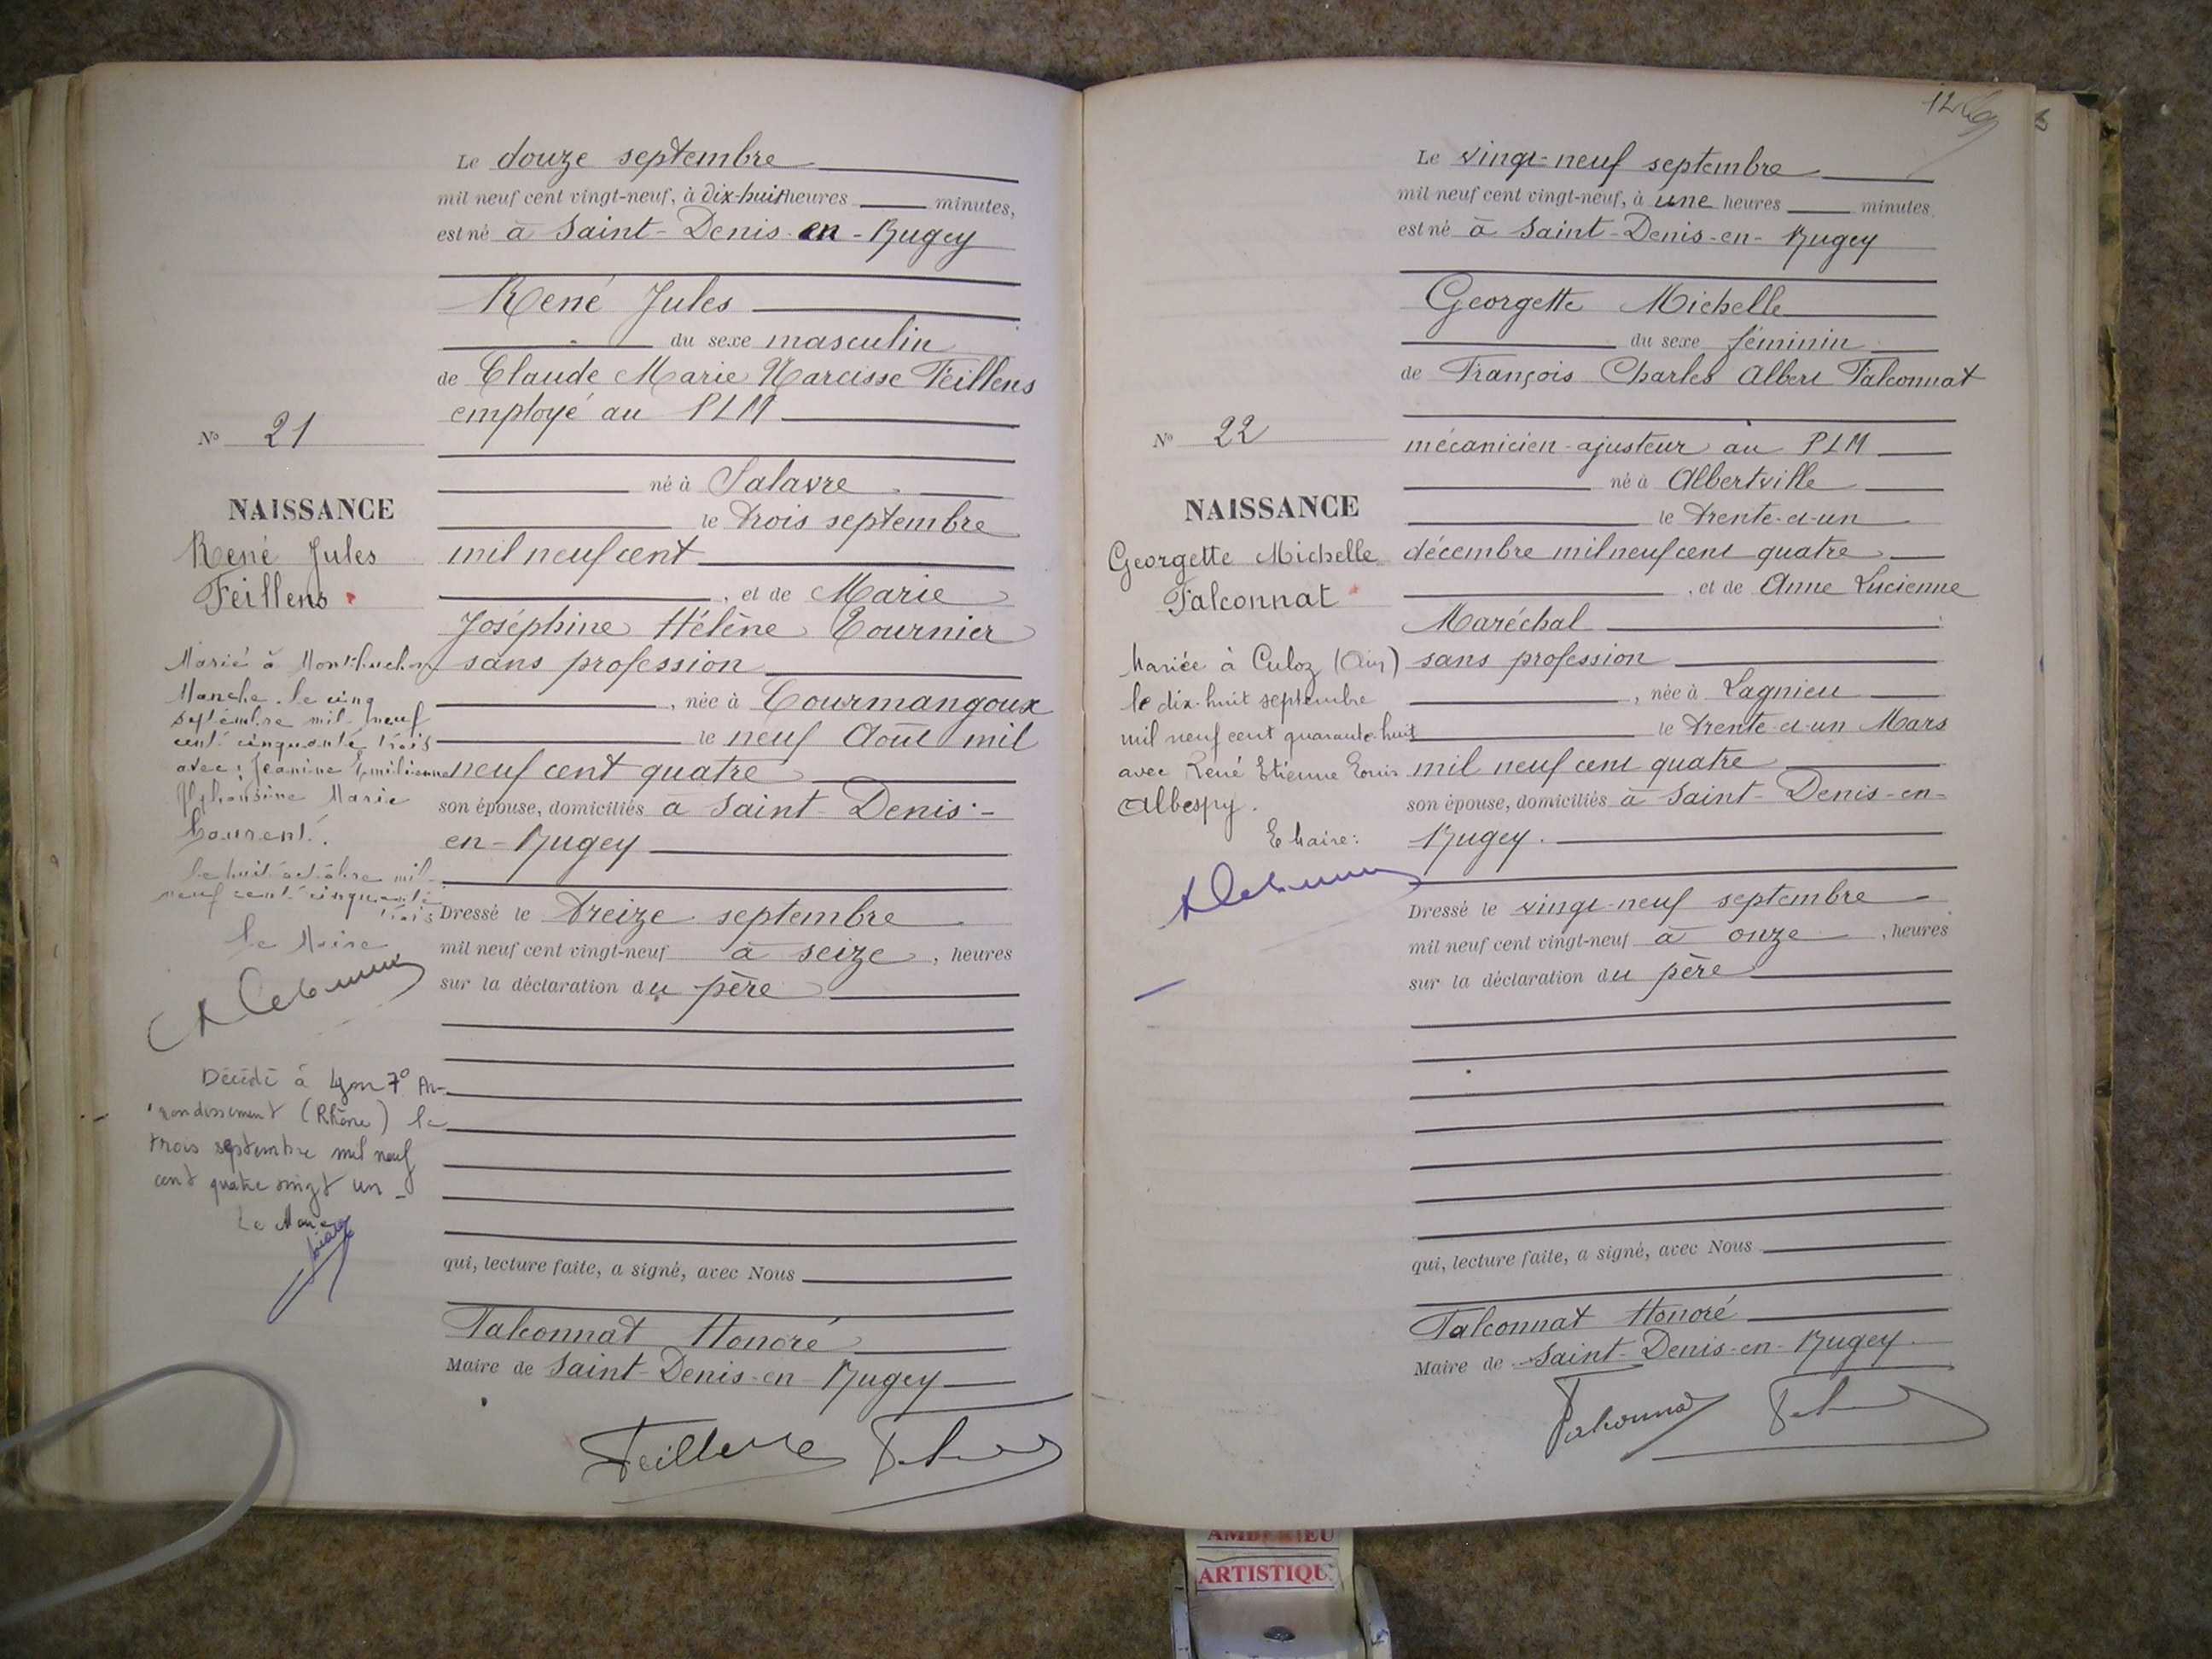 Le douze septembre
mil neuf cent vingt-neuf, à dix-huit heures minutes,
est né à Saint-Denis-en-Bugey
René Jules
du sexe masculin
de Claude Marie Narcisse Feillens
employé au PLM
né à Salavre
le trois septembre
mil neuf cent
, et de Marie
Joséphine Hélène Tournier
sans profession
, née à Courmangoux
le neuf Août mil
neuf cent quatre
son épouse, domiciliés à Saint-Denis-
en-Bugey
Dressé le treize septembre
mil neuf cent vingt-neuf à seize, heures
sur la déclaration du père
qui, lecture faite, a signé, avec Nous
Falconnat Honoré
Maire de Saint-Denis-en-Bugey
Feillens
N° 21
NAISSANCE
René Jules
Feillens
Marié à
Manche, le cinq
septembre mil neuf
cent cinquante trois
avec Jeanine Emilienne
Alphonsine Marie
le huit octobre mil
neuf cent cinquante
trois
Le Maire
Décédé à Lyon 7° Ar-
rondissement (Rhône) le
trois septembre mil neuf
cent quatre vingt un -
Le Maire
12
Le vingt-neuf septembre
mil neuf cent vingt-neuf, à une heures minutes
est né à Saint-Denis-en-Bugey
Georgette Michelle
du sexe féminin
de François Charles Albert Falconnat
mécanicien-ajusteur au PLM
né à Albertville
le trente-et-un
décembre mil neuf cent quatre
, et de Anne Lucienne
Maréchal
sans profession
, née à Lagnieu
le trente-et-un Mars
mil neuf cent quatre
son épouse, domiciliés à Saint-Denis-en-
Bugey.
Dressé le vingt-neuf septembre
mil neuf cent vingt-neuf à onze, heures
sur la déclaration du père
qui, lecture faite, a signé, avec Nous
Falconnat Honoré
Maire de Saint-Denis-en-Bugey.
Falconnat
N° 22
NAISSANCE
Georgette Michelle
Falconnat
Mariée à Culoz (Ain)
le dix-huit septembre
mil neuf cent quarante-huit
avec René Etienne Louis
Albespy.
Le Maire:
ARTISTIQU